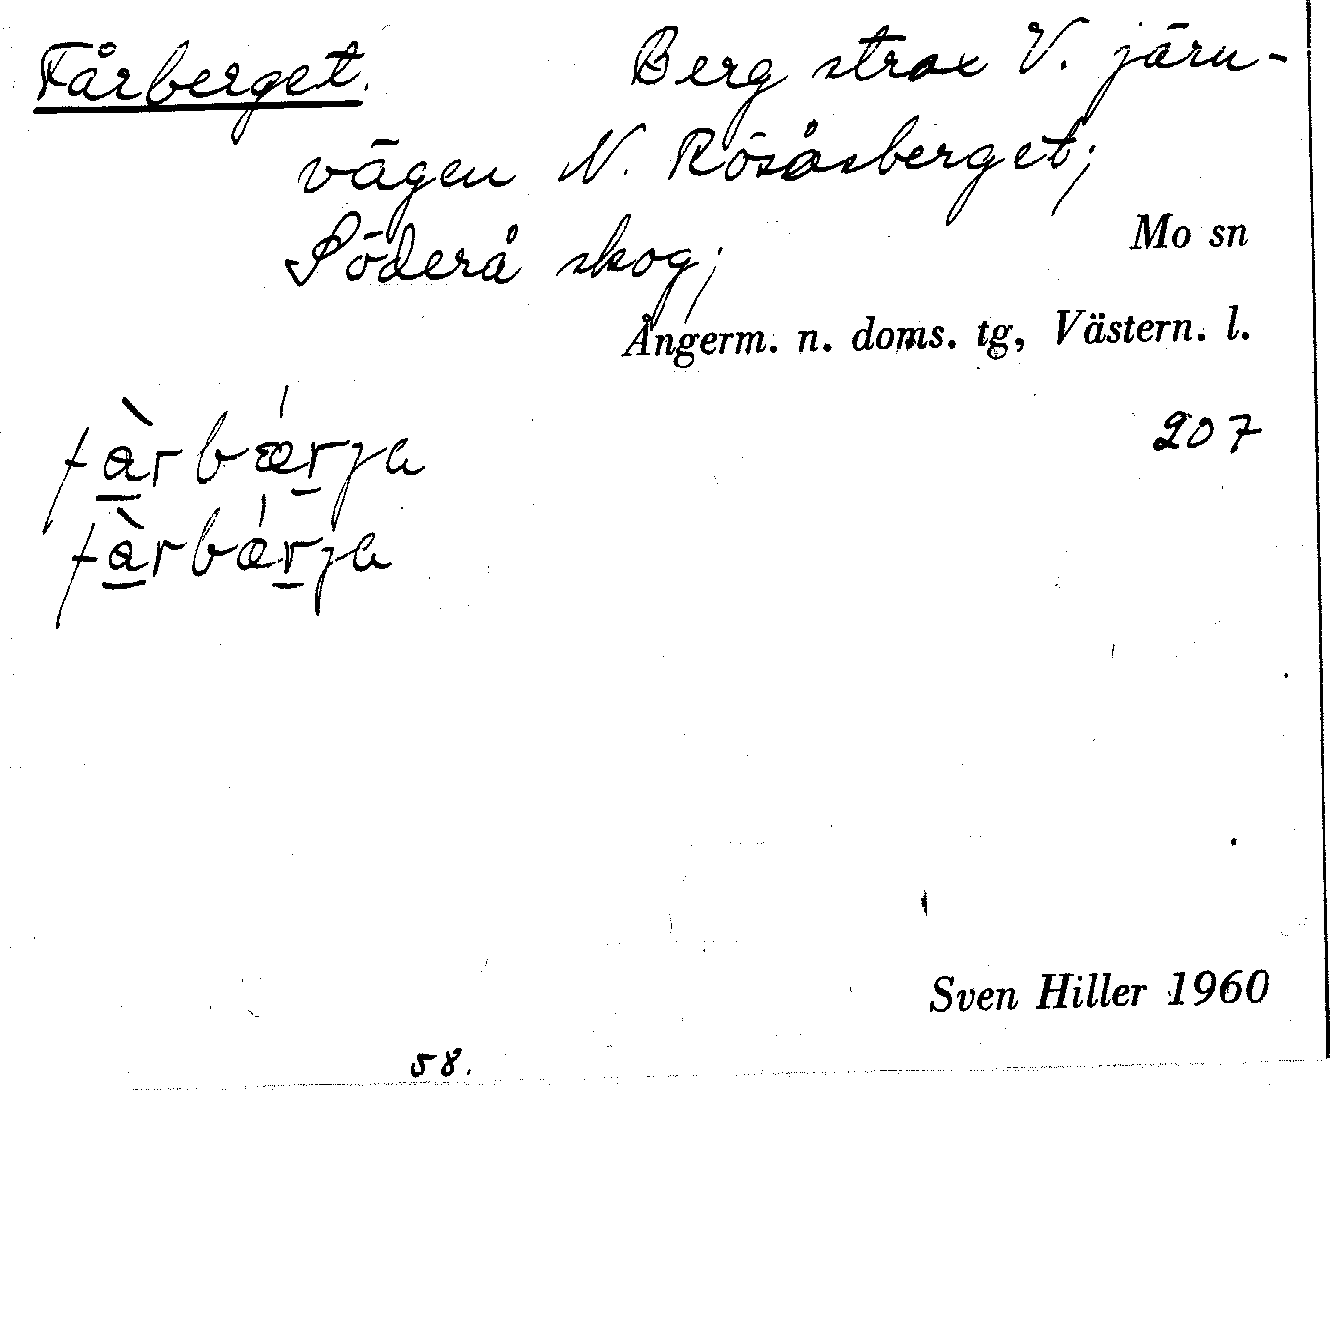 Fårberget. Berg strax V. järn-
vägen N. Rösåsberget;
Söderå skog;
Mo sn
Ångerm. n. doms. tg, Västern. l.
207
fàrbǽrja
fàrbǽrja
Sven Hiller 1960
58.